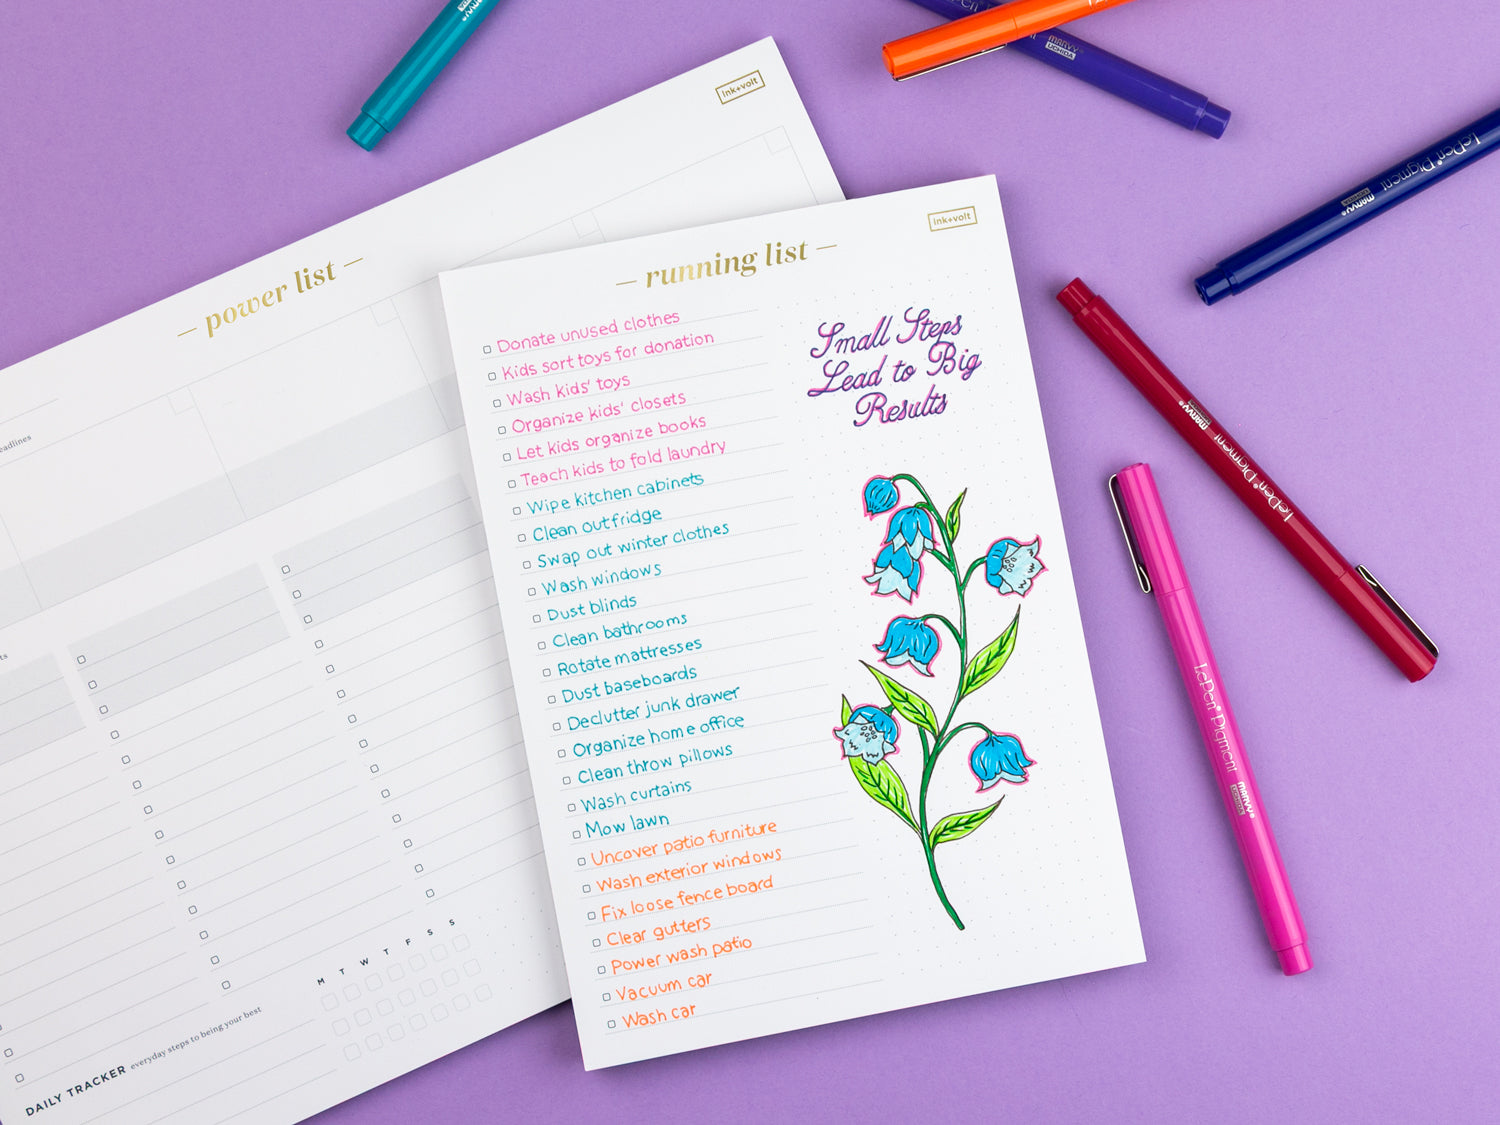 ink+volt
— power list —
eadlines
ts
M T W T F S S
DAILY TRACKER everyday steps to being your best
ink+volt
— running list —
Donate unused clothes
Kids sort toys for donation
Wash kids' toys
Organize kids' closets
Let kids organize books
Teach kids to fold laundry
Wipe kitchen cabinets
Clean out fridge
Swap out winter clothes
Wash windows
Dust blinds
Clean bathrooms
Rotate mattresses
Dust baseboards
Declutter junk drawer
Organize home office
Clean throw pillows
Wash curtains
Mow lawn
Uncover patio furniture
Wash exterior windows
Fix loose fence board
Clear gutters
Power wash patio
Vacuum car
Wash car
Small Steps
Lead to Big
Results
MARVY
UCHIDA
LePen Pigment
MARVY
UCHIDA
LePen Pigment
MARVY
UCHIDA
LePen Pigment
MARVY
UCHIDA